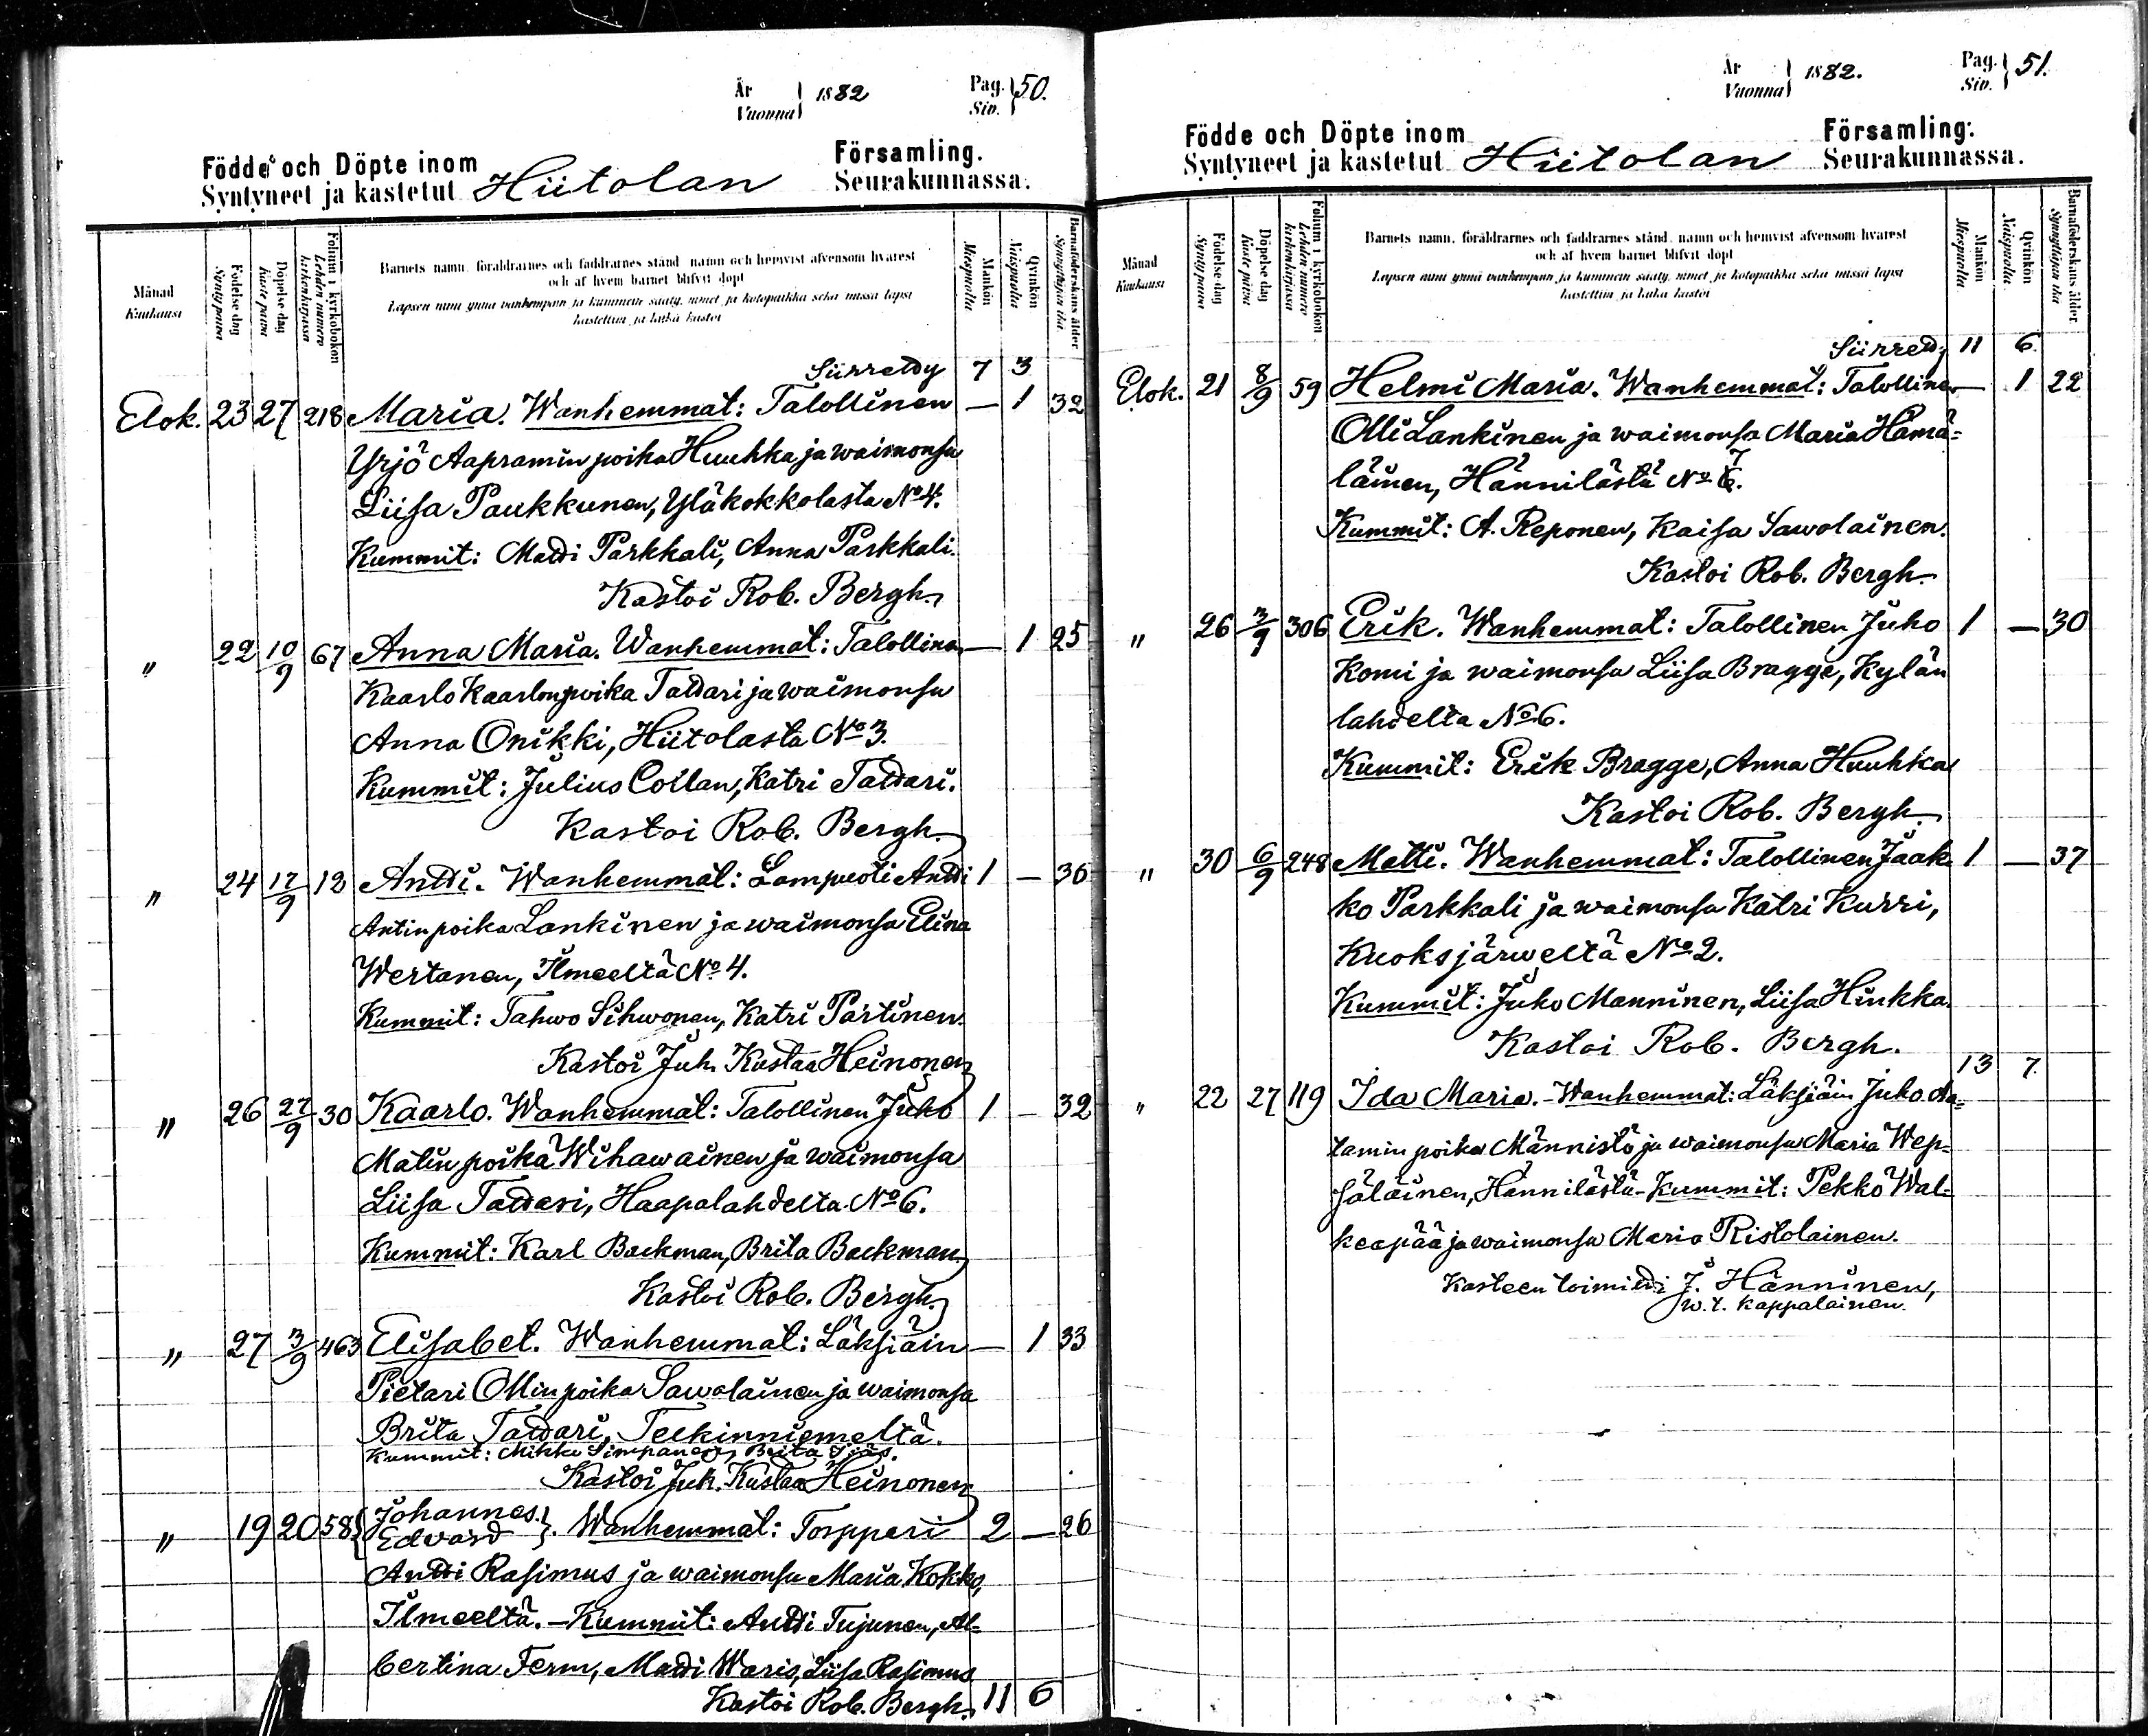 År Vuonna } 1882 Pag. Siv. } 50.
Födde och Döpte inom Församling.
Syntyneet ja kastetut Hiitolan Seurakunnassa.
Månad Kuukausi
Födelse-dag Syntypäivä
Döpelse-dag Kastepäivä
Folium i kyrkoboken Lehden numero kirkonkirjassa
Barnets namn, föräldrarnes och faddrarnes stånd, namn och hemvist äfvensom hvarest
och af hvem barnet blifvit döpt
Lapsen nimi ynnä vanhempain ja kummein sääty, nimet ja kotopaikka sekä missä lapsi
kastettiin ja kuka kastoi
Mankön Miespuolia
Qvinkön Naispuolia
Barnaföderskans ålder Synnyttäjän ikä
Siirretty 7 3
Elok. 23 27 218 Maria. Wanhemmat: Talollinen — 1 32
Yrjö Aapramin poika Huuhka ja waimonsa
Liisa Paukkunen, Yläkokkolasta No 4.
Kummit: Matti Parkkali, Anna Parkkali.
Kastoi Rob. Bergh.
" 22 10/9 67 Anna Maria. Wanhemmat: Talollinen — 1 25
Kaarlo Kaarlonpoika Tattari ja waimonsa
Anna Onikki, Hiitolasta No 3.
Kummit: Julius Collan, Katri Tattari.
Kastoi Rob. Bergh.
" 24 17/9 12 Antti. Wanhemmat: Lampuoti Antti 1 — 36
Antinpoika Lankinen ja waimonsa Elina
Wertanen, Ilmeeltä No 4.
Kummit: Tahwo Sihwonen, Katri Pärtinen.
Kastoi Juh. Kustaa Heinonen
" 26 27/9 30 Kaarlo. Wanhemmat: Talollinen Juho 1 — 32
Matin poika Wihawainen ja waimonsa
Liisa Tattari, Haapalahdelta No 6.
Kummit: Karl Backman, Brita Backman.
Kastoi Rob. Bergh.
" 27 3/9 463 Elisabet. Wanhemmat: Läksiäin — 1 33
Pietari Ollinpoika Sawolainen ja waimonsa
Brita Tattari, Teekinniemeltä.
Kummit: Mikko Simpanen, Brita
Kastoi Juh. Kustaa Heinonen
" 19 20 58 { Johannes. Edvard }. Wanhemmat: Torppari 2 — 26
Antti Rasimus ja waimonsa Maria Kokko,
Ilmeeltä. — Kummit: Antti Tujunen, Al-
bertina Ferm, Matti Waris, Liisa Rasimus
Kastoi Rob. Bergh. 11 6
År Vuonna } 1882. Pag. Siv. } 51.
Födde och Döpte inom Församling.
Syntyneet ja kastetut Hiitolan Seurakunnassa.
Månad Kuukausi
Födelse-dag Syntypäivä
Döpelse-dag Kastepäivä
Folium i kyrkoboken Lehden numero kirkonkirjassa
Barnets namn, föräldrarnes och faddrarnes stånd, namn och hemvist äfvensom hvarest
och af hvem barnet blifvit döpt
Lapsen nimi ynnä vanhempain ja kummein sääty, nimet ja kotopaikka sekä missä lapsi
kastettiin ja kuka kastoi
Mankön Miespuolia
Qvinkön Naispuolia
Barnaföderskans ålder Synnyttäjän ikä
Siirretty 11 6.
Elok. 21 8/9 59 Helmi Maria. Wanhemmat: Talollinen — 1 22
Olli Lankinen ja waimonsa Maria Hämä-
läinen, Hännilästä No 7.
Kummit: A. Reponen, Kaisa Sawolainen.
Kastoi Rob. Bergh.
" 26 3/9 306 Erik. Wanhemmat: Talollinen Juho 1 — 30
Komi ja waimonsa Liisa Bragge, Kylän
lahdelta No 6.
Kummit: Erik Bragge, Anna Huuhka
Kastoi Rob. Bergh.
" 30 6/9 248 Matti. Wanhemmat: Talollinen Jaak 1 — 37
ko Parkkali ja waimonsa Katri Kurri,
Kuoksjärweltä No 2.
Kummit: Juho Manninen, Liisa Hinkka.
Kastoi Rob. Bergh.
13 7.
" 22 27 119 Ida Maria. – Wanhemmat: Läksiäin Juho Aa-
tamin poika Männistö ja waimonsa Maria Wep-
säläinen, Hännilästä – Kummit: Pekko Wal-
keapää ja waimonsa Maria Ristolainen.
Kasteen toimitti J. Hänninen,
w. t. kappalainen.